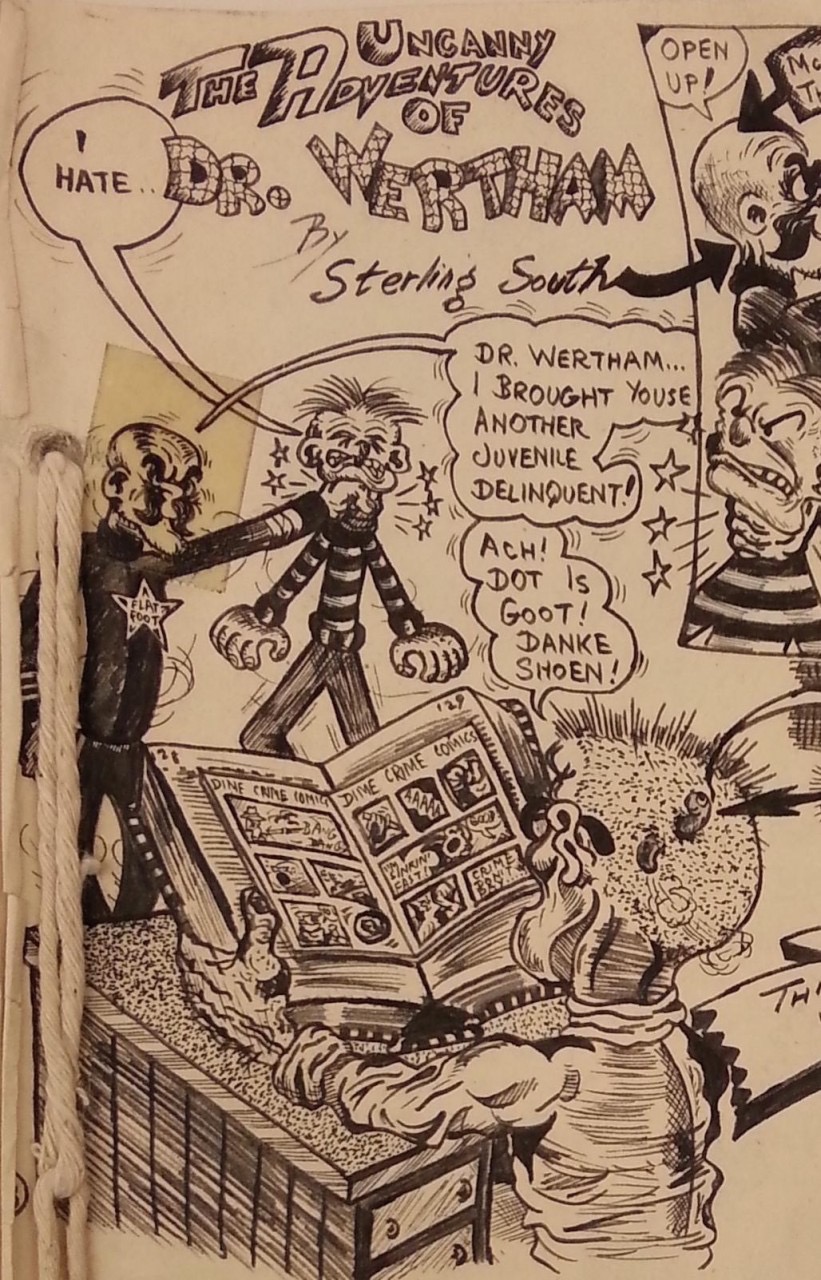 THE UNCANNY
ADVENTURES
OF
DR. WERTHAM
By
Sterling South
I
HATE..
DR. WERTHAM...
I BROUGHT YOUSE
ANOTHER
JUVENILE
DELINQUENT!
ACH!
DOT IS
GOOT!
DANKE
SHOEN!
A
FLAT
FOOT
128
DIME CRIME COMICS
BANG
BANG
129
DIME CRIME COMICS
AAAAA
I'M
SINKIN'
FAST!
CRIME
DON'T
PAY
OPEN
UP!